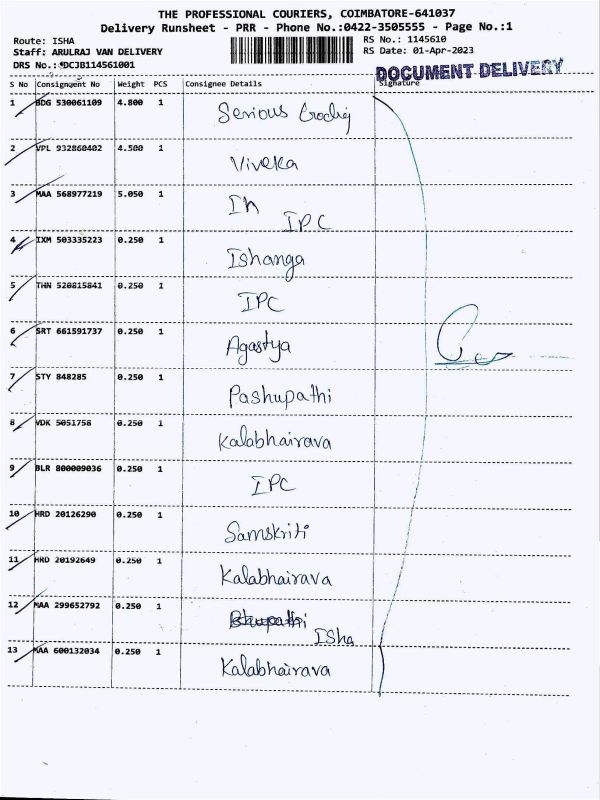 THE PROFESSIONAL COURIERS, COIMBATORE-641037
Delivery Runsheet - PRR - Phone No.:0422-3505555 - Page No.:1
Route: ISHA RS No.: 1145610
Staff: ARULRAJ VAN DELIVERY RS Date: 01-Apr-2023
DRS No.: DCJB114561001
DOCUMENT DELIVERY
S No Consignment No Weight PCS Consignee Details Signature
1 BDG 530061109 4.800 1
Serious
2 VPL 932860402 4.500 1
Viveka
3 MAA 568977219 5.050 1
In
IPC
4 IXM 503335223 0.250 1
Ishanga
5 THN 520815841 0.250 1
IPC
6 SRT 661591737 0.250 1
Agastya
7 STY 848285 0.250 1
Pashupathi
8 VDK 5051758 0.250 1
Kalabhairava
9 BLR 800009036 0.250 1
IPC
10 HRD 20126290 0.250 1
Samskriti
11 HRD 20192649 0.250 1
Kalabhairava
12 MAA 299652792 0.250 1
Bhupathi
ISha
13 MAA 600132034 0.250 1
Kalabhairava